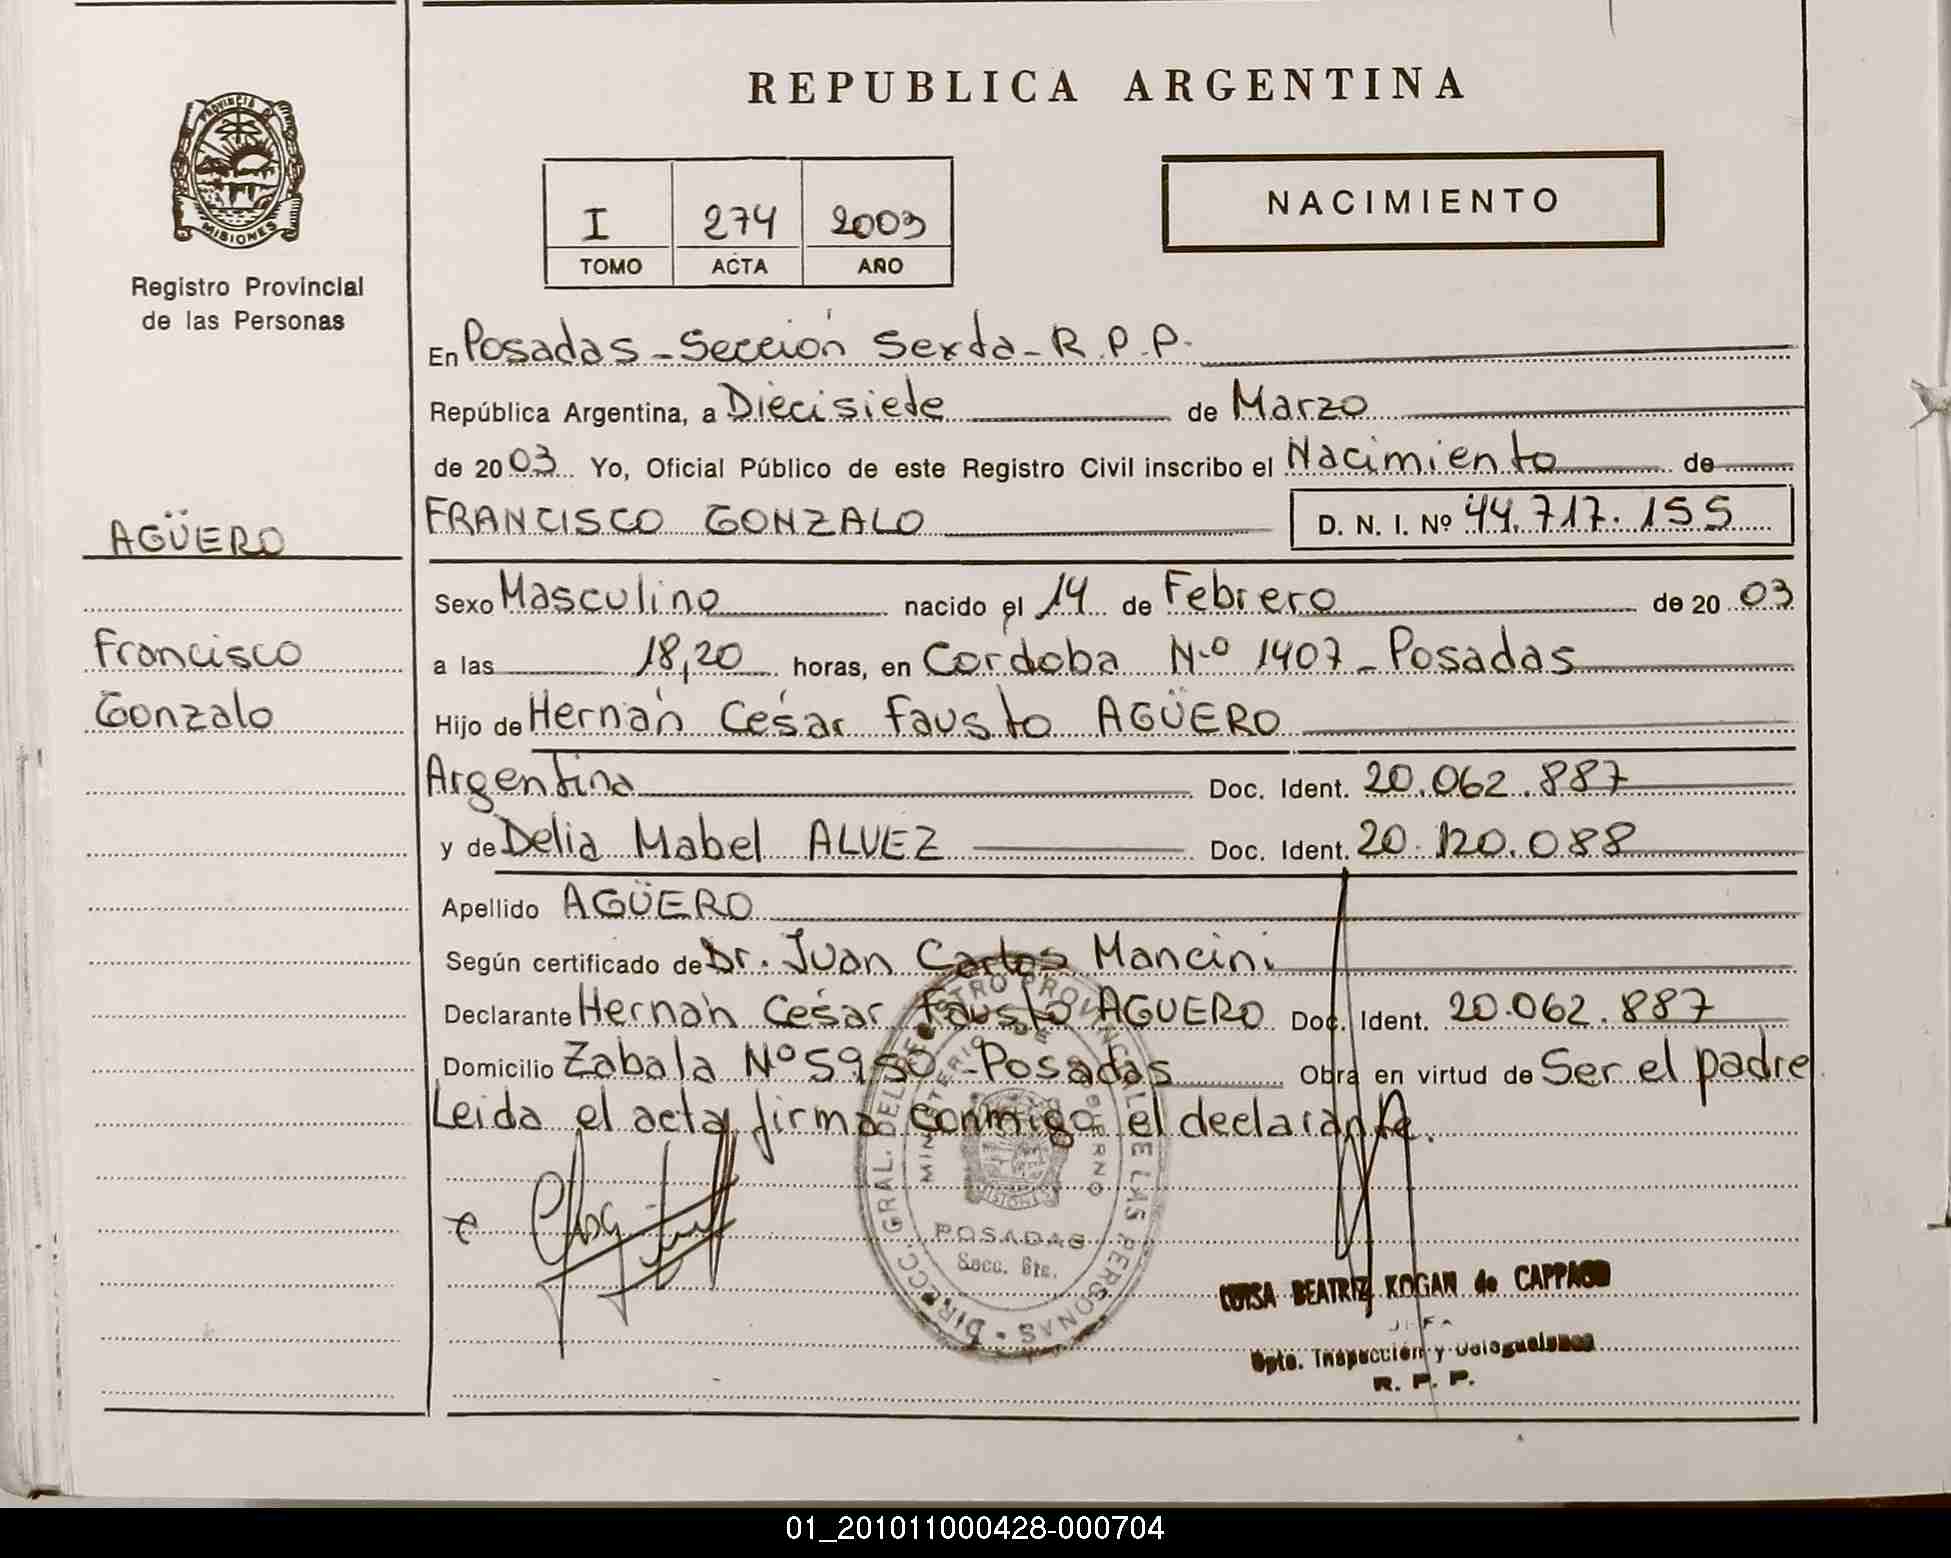 REPUBLICA ARGENTINA
PROVINCIA DE
MISIONES
Registro Provincial
de las Personas
I 274 2003
TOMO ACTA AÑO
NACIMIENTO
En Posadas - Sección Sexta - R.P.P.
República Argentina, a Diecisiete de Marzo
de 2003 Yo, Oficial Público de este Registro Civil inscribo el Nacimiento de
AGÜERO
FRANCISCO GONZALO D. N. I. Nº 44.717.155
Sexo Masculino nacido el 14 de Febrero de 2003
Francisco
a las 18,20 horas, en Cordoba Nº 1407 - Posadas
Gonzalo
Hijo de Hernán César Fausto AGÜERO
Argentina Doc. Ident. 20.062.887
y de Delia Mabel ALVEZ Doc. Ident. 20.120.088
Apellido AGÜERO
Según certificado de Dr. Juan Carlos Mancini
Declarante Hernán César Fausto AGUERO Doc. Ident. 20.062.887
Domicilio Zabala Nº 5950 - Posadas Obra en virtud de Ser el padre
Leida el acta firma conmigo el declarante.
DIRECC. GRAL. DEL REGISTRO PROVINCIAL DE LAS PERSONAS
MINISTERIO DE GOBIERNO
MISIONES
POSADAS
Secc. 6ta.
LUISA BEATRIZ KOGAN de CAPPAGO
JEFA
Dpto. Inspección y Delegaciones
R. P. P.
01_201011000428-000704